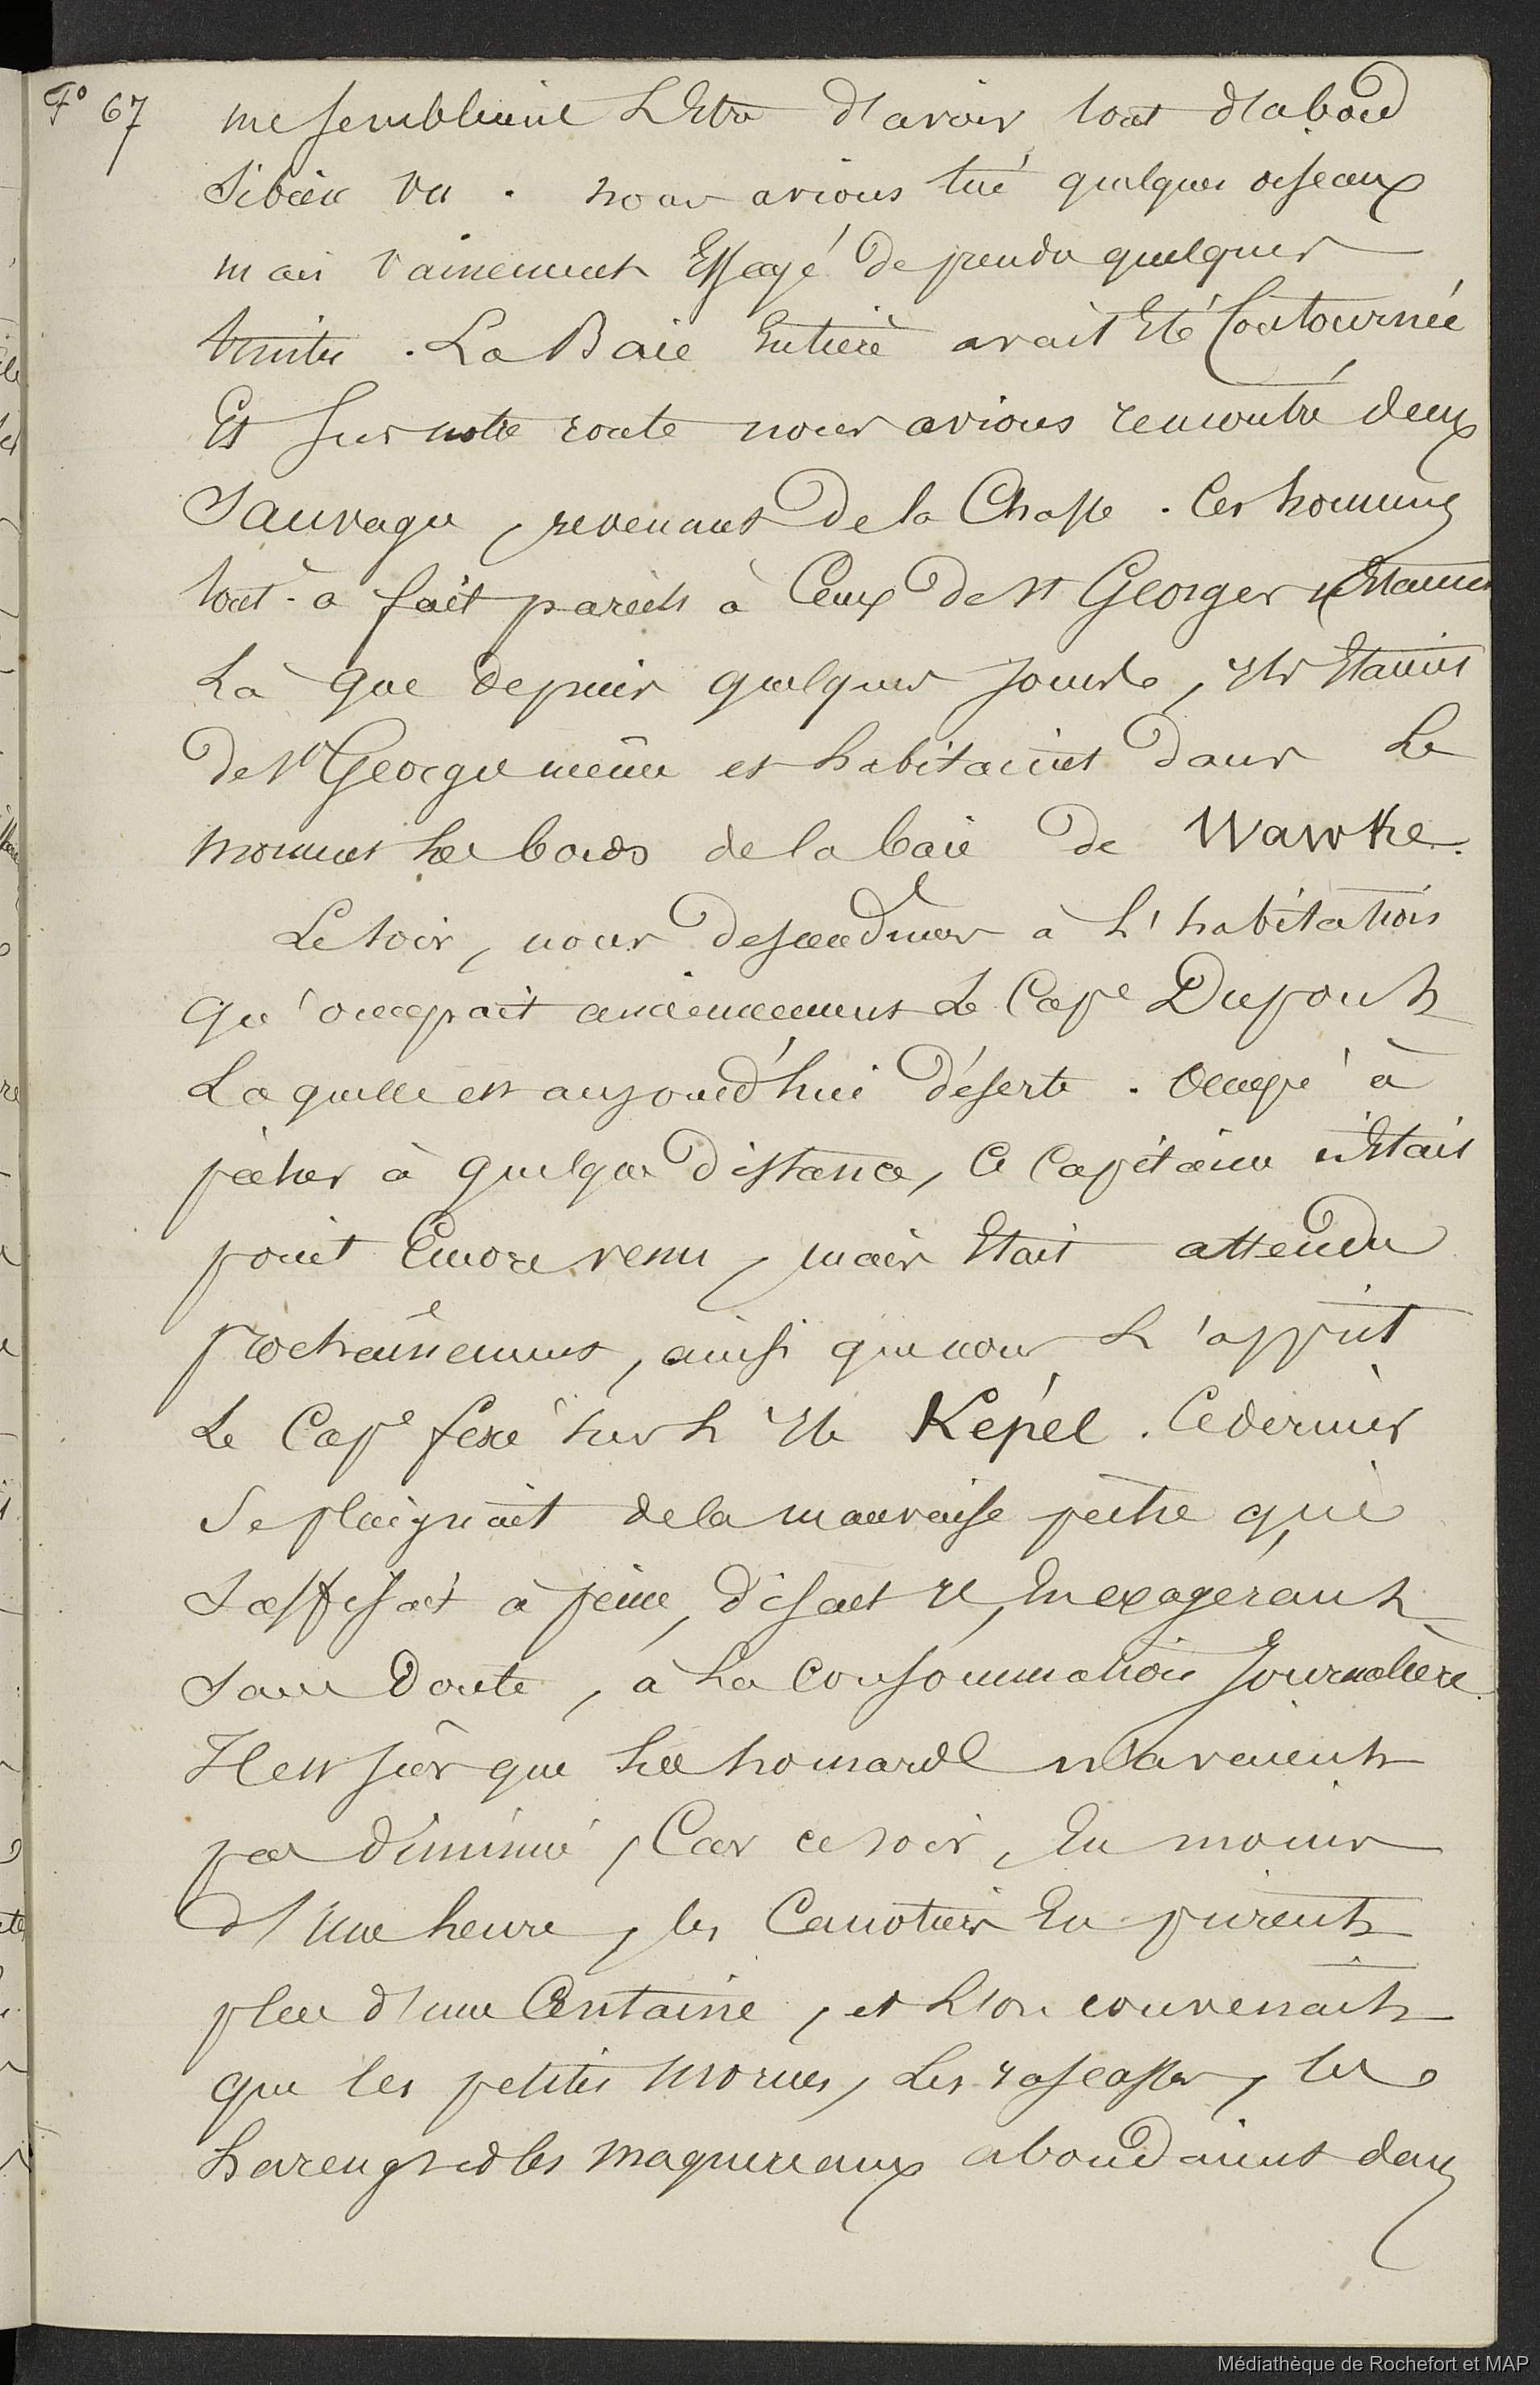 F° 67
me semblaient L'Etre d'avoir tout d'abord
si bien vu . nous avions tué quelques oiseaux
mais vainement Essayé de prendre quelques
truites . La Baie Entière avait Eté Contournée
Et sur notre route nous avions rencontré deux
Sauvages, revenant De la Chasse . Ces hommes
tout-à fait pareils à Ceux De St Georges n'Etaient
La que depuis quelques jours, Ils Etaient
De St George même et habitaient dans Le
moment Les bords de la baie de Wawke.
Le soir, nous descendimes à L'habitation
qu'occupait anciennement Le Cape Dupont
Laquelle est aujourd'hui déserte . Occupé à
pêcher à quelque distance, Ce Capitaine n'Etait
point Encore venu, mais Etait attendu
prochainement, ainsi que nous L'apprit
Le Cape fixé sur L'Ile Képél . Ce dernier
Se plaignait de la mauvaise pêche qui
Suffisait à peine, disait Il, En exagérant
Sans Doute, à La Consommation Journalière.
Il est sûr que Les homards n'avaient
pas diminué, Car ce soir, En moins
d'Une heure, les Canotiers En prirent
plus d'une Centaine, et L'on convenait
que les petites morues, Les rascasses, les
harengs et les maquereaux abondaient dans
Médiathèque de Rochefort et MAP